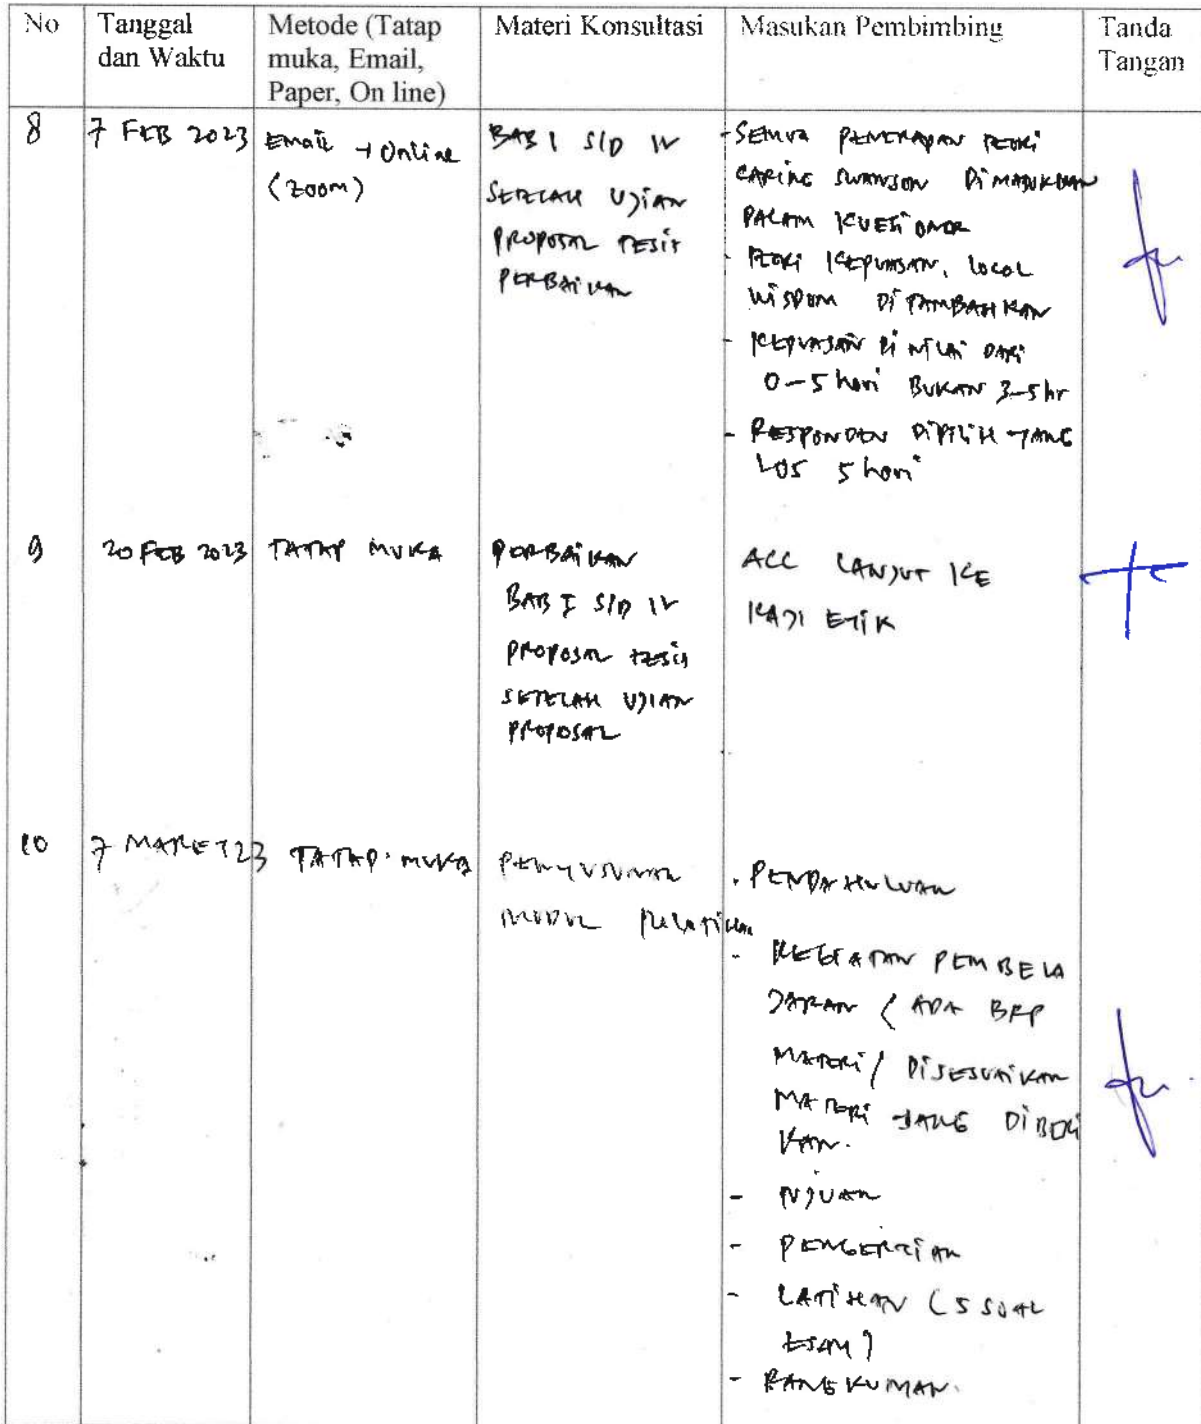 No
Tanggal
dan Waktu
Metode (Tatap
muka, Email,
Paper, On line)
Materi Konsultasi
Masukan Pembimbing
Tanda
Tangan
8
7 FEB 2023
Email → Online
(Zoom)
BAB I S/D IV
SETELAH UJIAN
PROPOSAL TESIS
PERBAIKAN
- SEMUA PENERAPAN TEORI
CARING SWANSON DIMASUKKAN
DALAM KUESIONER
- TEORI KEPUASAN, LOCAL
WISDOM DITAMBAHKAN
- KEPUASAN DI NILAI DARI
0-5 hari BUKAN 3-5 hr
- RESPONDEN DIPILIH YANG
LOS 5 hari
9
20 FEB 2023
TATAP MUKA
PERBAIKAN
BAB I S/D IV
PROPOSAL TESIS
SETELAH UJIAN
PROPOSAL
ACC LANJUT KE
KAJI ETIK
10
7 MARET 23
TATAP MUKA
PENYUSUNAN
MODUL PELATIHAN
. PENDAHULUAN
- KEGIATAN PEMBELA
JARAN ( ADA BRP
MATERI / DISESUAIKAN
MATERI YANG DIBERI
KAN.
- TUJUAN
- PENGERTIAN
- LATIHAN (5 SOAL
ESAY)
- RANGKUMAN.